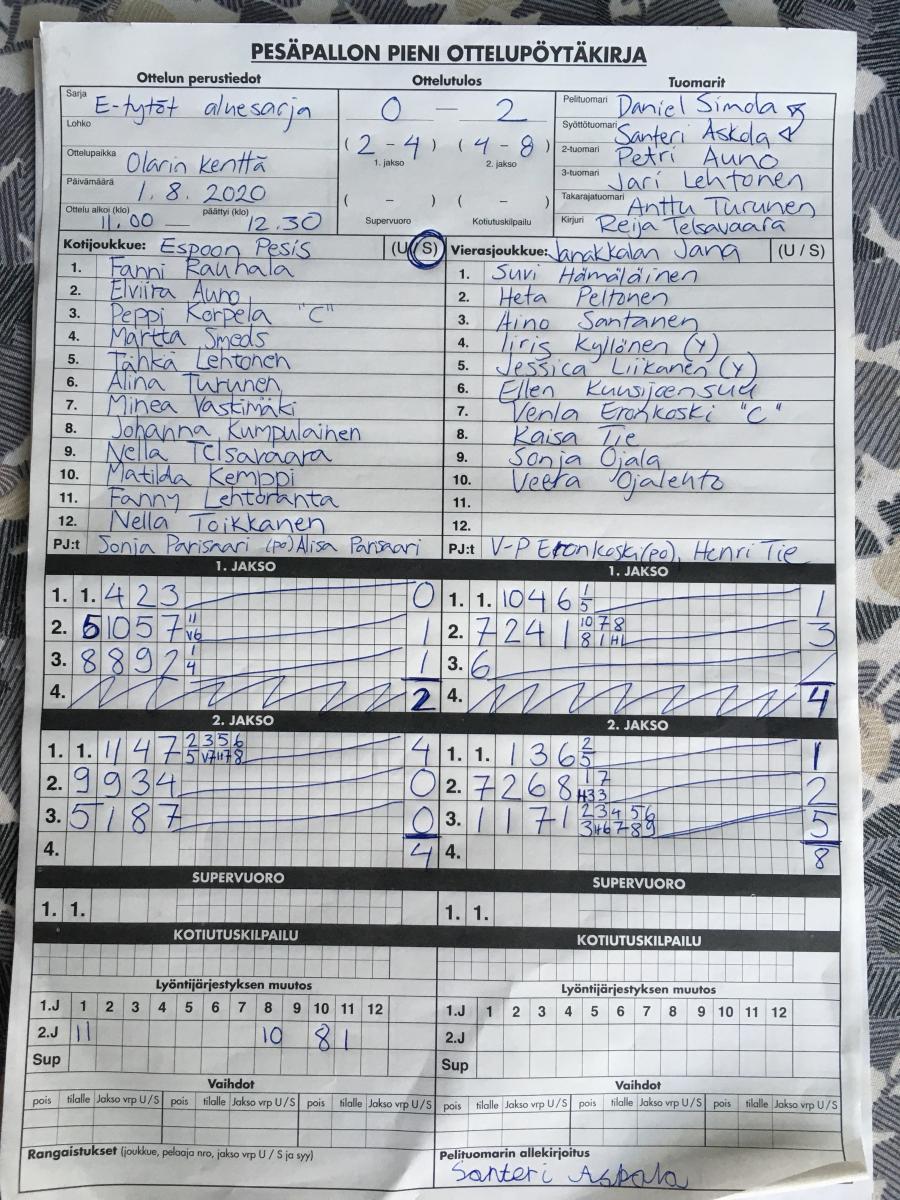 PESÄPALLON PIENI OTTELUPÖYTÄKIRJA
Ottelun perustiedot
Sarja E-tytöt aluesarja
Lohko
Ottelupaikka Olarin kenttä
Päivämäärä 1.8.2020
Ottelu alkoi (klo) 11.00 — päättyi (klo) 12.30
Ottelutulos
0 — 2
(2 - 4) (4 - 8)
1. jakso 2. jakso
( - ) ( - )
Supervuoro Kotiutuskilpailu
Tuomarit
Pelituomari Daniel Simola
Syöttötuomari Santeri Askola
2-tuomari Petri Auno
3-tuomari Jari Lehtonen
Takarajatuomari Anttu Turunen
Kirjuri Reija Telsavaara
Kotijoukkue: Espoon Pesis (U/S)
1. Fanni Rauhala
2. Elviira Auno
3. Peppi Korpela "C"
4. Martta Smeds
5. Tähkä Lehtonen
6. Alina Turunen
7. Minea Västimäki
8. Johanna Kumpulainen
9. Nella Telsavaara
10. Matilda Kemppi
11. Fanny Lehtoranta
12. Nella Toikkanen
PJ:t Sonja Parisaari (po) Alisa Parisaari
Vierasjoukkue: Janakkalan Jana (U / S)
1. Suvi Hämäläinen
2. Heta Peltonen
3. Aino Santanen
4. Iiris Kyllönen (Y)
5. Jessica Liikanen (Y)
6. Ellen Kuusijoensuu
7. Venla Eronkoski "C"
8. Kaisa Tie
9. Sonja Ojala
10. Veera Ojalehto
11.
12.
PJ:t V-P Eronkoski (po), Henri Tie
1. JAKSO
1. 1. 4 2 3 0
2. 5 10 5 7 11 V6 1
3. 8 8 9 2 1 4 1
4. 2
1. JAKSO
1. 1. 10 4 6 1 5 1
2. 7 2 4 1 10 7 8 8 1 H1 3
3. 6
4. 4
2. JAKSO
1. 1. 11 4 7 2 3 5 6 5 V7 11 7 8 4
2. 9 9 3 4 0
3. 5 1 8 7 0
4. 4
2. JAKSO
1. 1. 1 3 6 2 5 1
2. 7 2 6 8 1 7 H3 3 2
3. 1 1 7 1 2 3 4 5 6 3 4 6 7 8 9 5
4. 8
SUPERVUORO
1. 1.
SUPERVUORO
1. 1.
KOTIUTUSKILPAILU
KOTIUTUSKILPAILU
Lyöntijärjestyksen muutos
1.J 1 2 3 4 5 6 7 8 9 10 11 12
2.J 11 10 8 1
Sup
Lyöntijärjestyksen muutos
1.J 1 2 3 4 5 6 7 8 9 10 11 12
2.J
Sup
Vaihdot
pois tilalle Jakso vrp U/S pois tilalle Jakso vrp U/S pois tilalle Jakso vrp U/S
Vaihdot
pois tilalle Jakso vrp U/S pois tilalle Jakso vrp U/S pois tilalle Jakso vrp U/S
Rangaistukset (joukkue, pelaaja nro, jakso vrp U / S ja syy)
Pelituomarin allekirjoitus
Santeri Askola